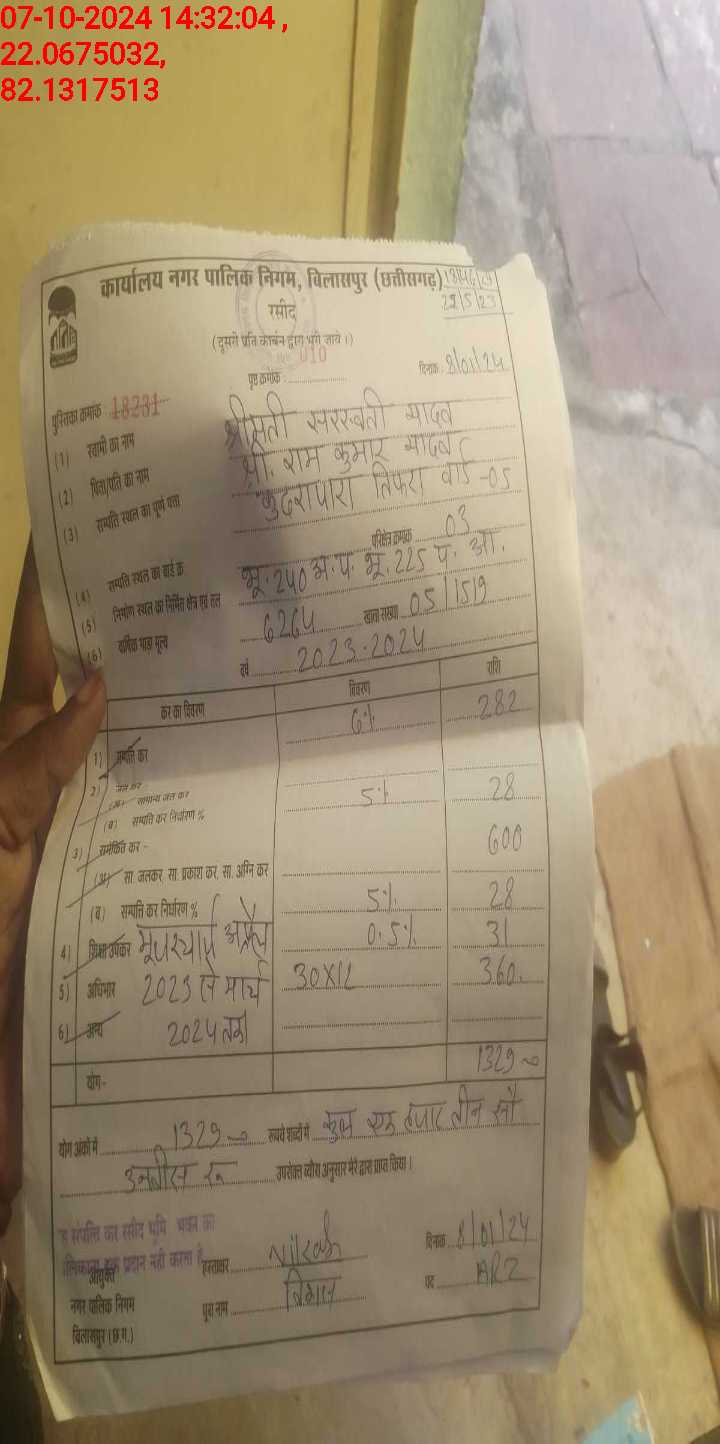 07-10-2024 14:32:04 ,
22.0675032,
82.1317513
कार्यालय नगर पालिक निगम, बिलासपुर (छत्तीसगढ़)
रसीद
22/5/23
(दूसरी प्रति कार्बन द्वारा भरी जाये।)
010
पृष्ठ क्रमांक : दिनांक : 8/01/24
पुस्तिका क्रमांक 18231
(1) स्वामी का नाम श्रीमती सरस्वती यादव
(2) पिता/पति का नाम श्री. राम कुमार यादव
(3) सम्पत्ति स्थल का पूर्ण पता कुदरापारा तिफरा वार्ड -05
(4) सम्पत्ति स्थल का वार्ड क्र परिक्षेत्र क्रमांक 03
(5) निर्माण स्थल का निर्मित क्षेत्र एवं तल भू. 240 अ.प. भू. 225 प. आ.
(6) वार्षिक भाड़ा मूल्य 6264 खाता संख्या 05/1519
वर्ष 2023-2024
कर का विवरण विवरण राशि
1) सम्पत्ति कर 6% 282
2) जल कर -
(अ) सामान्य जल कर
(ब) सम्पत्ति कर निर्धारण % 5% 28
3) समेकित कर -
(अ) सा. जलकर, सा. प्रकाश कर, सा. अग्नि कर 600
(ब) सम्पत्ति कर निर्धारण %
4) शिक्षा उपकर 5% 28
0.5% 31
5) अधिभार 2023 से मार्च 30X12 360.
6) अन्य 2024 तक
योग- 1329
योग अंकों में 1329 रूपये शब्दों में कुल एक हजार तीन सौ
उनतीस रू उपरोक्त ब्यौरा अनुसार मेरे द्वारा प्राप्त किया।
संपत्ति कर रसीद भूमि भवन का
हक प्रदान नही करता है
आयुक्त
नगर पालिक निगम
बिलासपुर (छ.ग.)
हस्ताक्षर दिनांक 8/01/24
पूरा नाम पद ARI